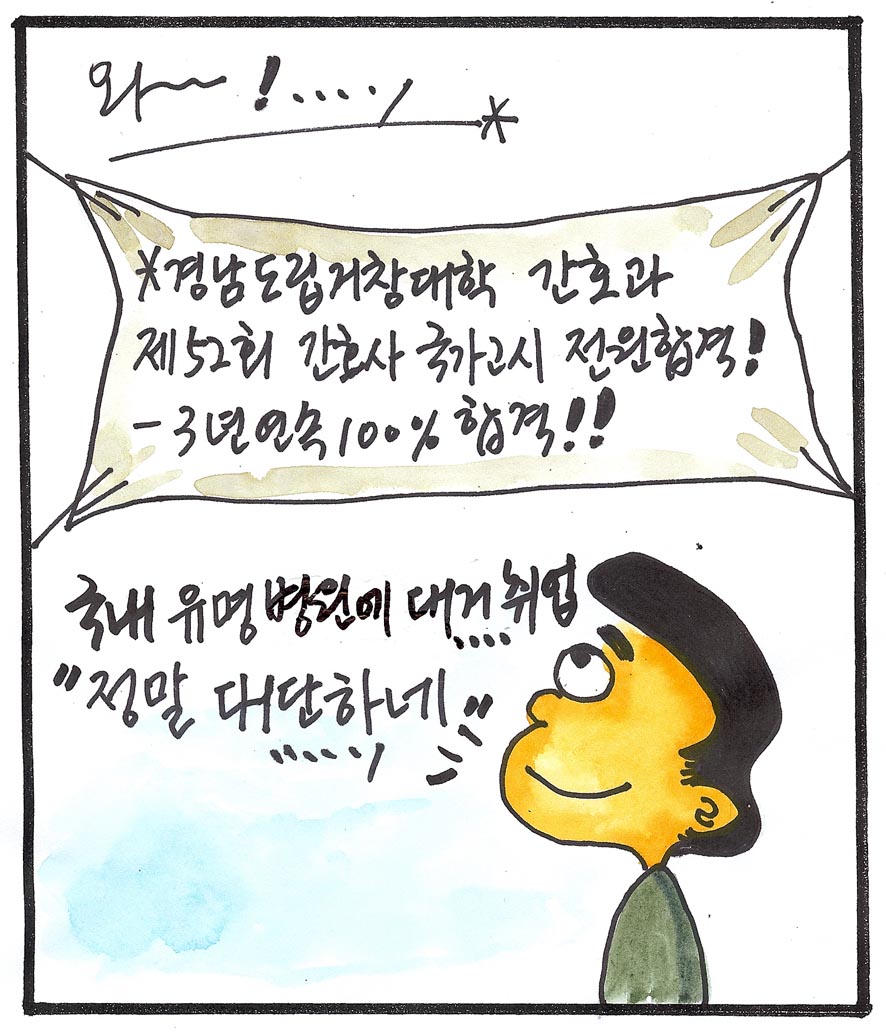 와~ !....
*경남도립거창대학 간호과
제52회 간호사 국가고시 전원합격!
- 3년연속 100% 합격!!
국내 유명 병원에 대거 취업
"정말 대단하네"